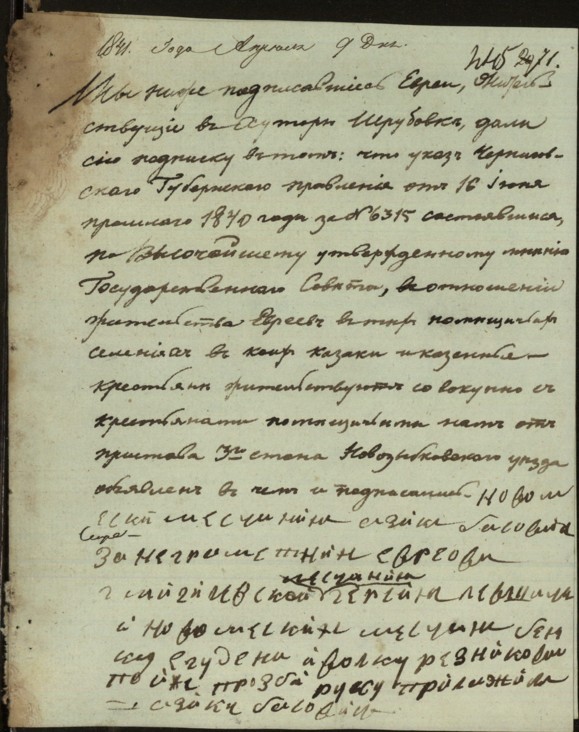 1841. Года Апреля 9 Дня.
№ 2971.
Мы ниже подписавшиеся Евреи, Жительствующіе въ Хуторѣ Шрубовкѣ, дали
сію подписку въ томъ: что указъ Чернигов-
скаго Губернскаго правленія отъ 16 Іюня
прошлаго 1840 года за № 6315 состоявшійся,
по Высочайшему утвержденному мнѣнію
Государственнаго Совѣта, въ отношеніи
жительства Евреевъ въ тѣхъ помѣщичьихъ
селеніяхъ въ коихъ казаки и казенные
крестьяне жительствуютъ совокупно съ
крестьянами помѣщичьими намъ отъ
пристава 3го стана Новозыбковскаго уѣзда
объявленъ въ чемъ и подписались. Новом
еский месчанинъ
За неграметнин евреови
месчанин
могилевской
и новомеский месчанин
резникови
по их прозби руку приложил